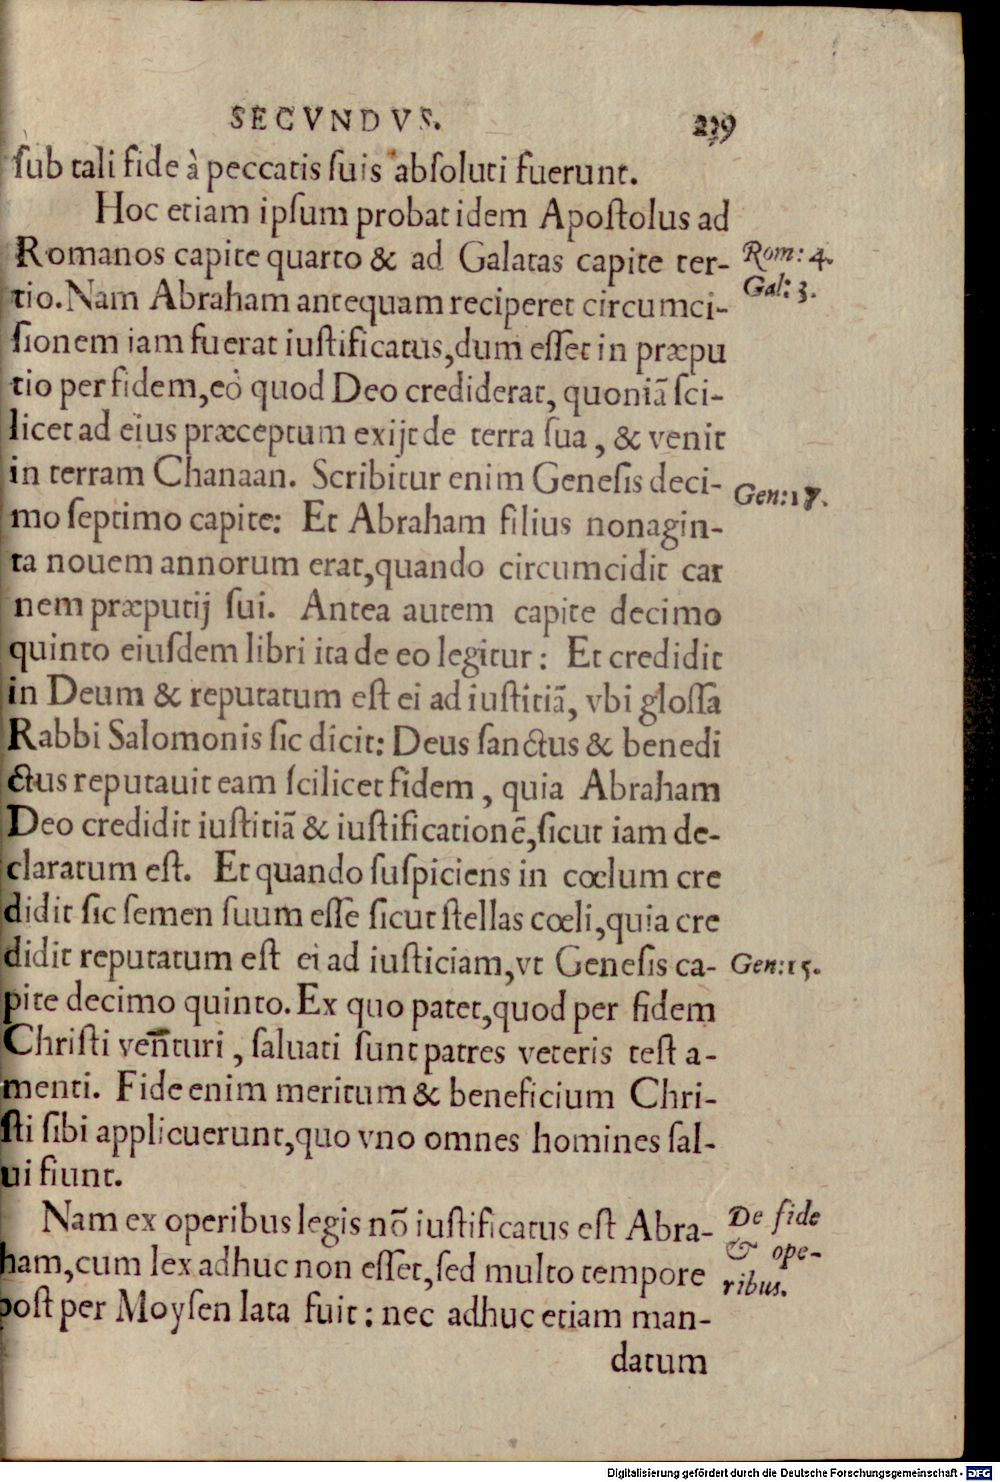 SECVNDVS. 239
sub tali fide à peccatis suis absoluti fuerunt.
Hoc etiam ipsum probat idem Apostolus ad
Romanos capite quarto & ad Galatas capite ter- Rom: 4.
Gal: 3.
tio. Nam Abraham antequam reciperet circumci-
sionem iam fuerat iustificatus, dum esset in præpu
tio per fidem, eò quod Deo crediderat, quoniã sci-
licet ad eius præceptum exijt de terra sua, & venit
in terram Chanaan. Scribitur enim Genesis deci- Gen: 17.
mo septimo capite: Et Abraham filius nonagin-
ta nouem annorum erat, quando circumcidit car
nem præputij sui. Antea autem capite decimo
quinto eiusdem libri ita de eo legitur: Et credidit
in Deum & reputatum est ei ad iustitiã, vbi glossa
Rabbi Salomonis sic dicit: Deus sanctus & benedi
ctus reputauit eam scilicet fidem, quia Abraham
Deo credidit iustitiã & iustificationẽ, sicut iam de-
claratum est. Et quando suspiciens in cœlum cre
didit sic semen suum esse sicut stellas cœli, quia cre
didit reputatum est ei ad iusticiam, vt Genesis ca- Gen: 15.
pite decimo quinto. Ex quo patet, quod per fidem
Christi venturi, saluati sunt patres veteris test a-
menti. Fide enim meritum & beneficium Chri-
sti sibi applicuerunt, quo vno omnes homines sal-
ui fiunt.
Nam ex operibus legis nõ iustificatus est Abra- De fide
ham, cum lex adhuc non esset, sed multo tempore & ope-
post per Moysen lata fuit: nec adhuc etiam man- ribus.
datum
Digitalisierung gefördert durch die Deutsche Forschungsgemeinschaft - DFG